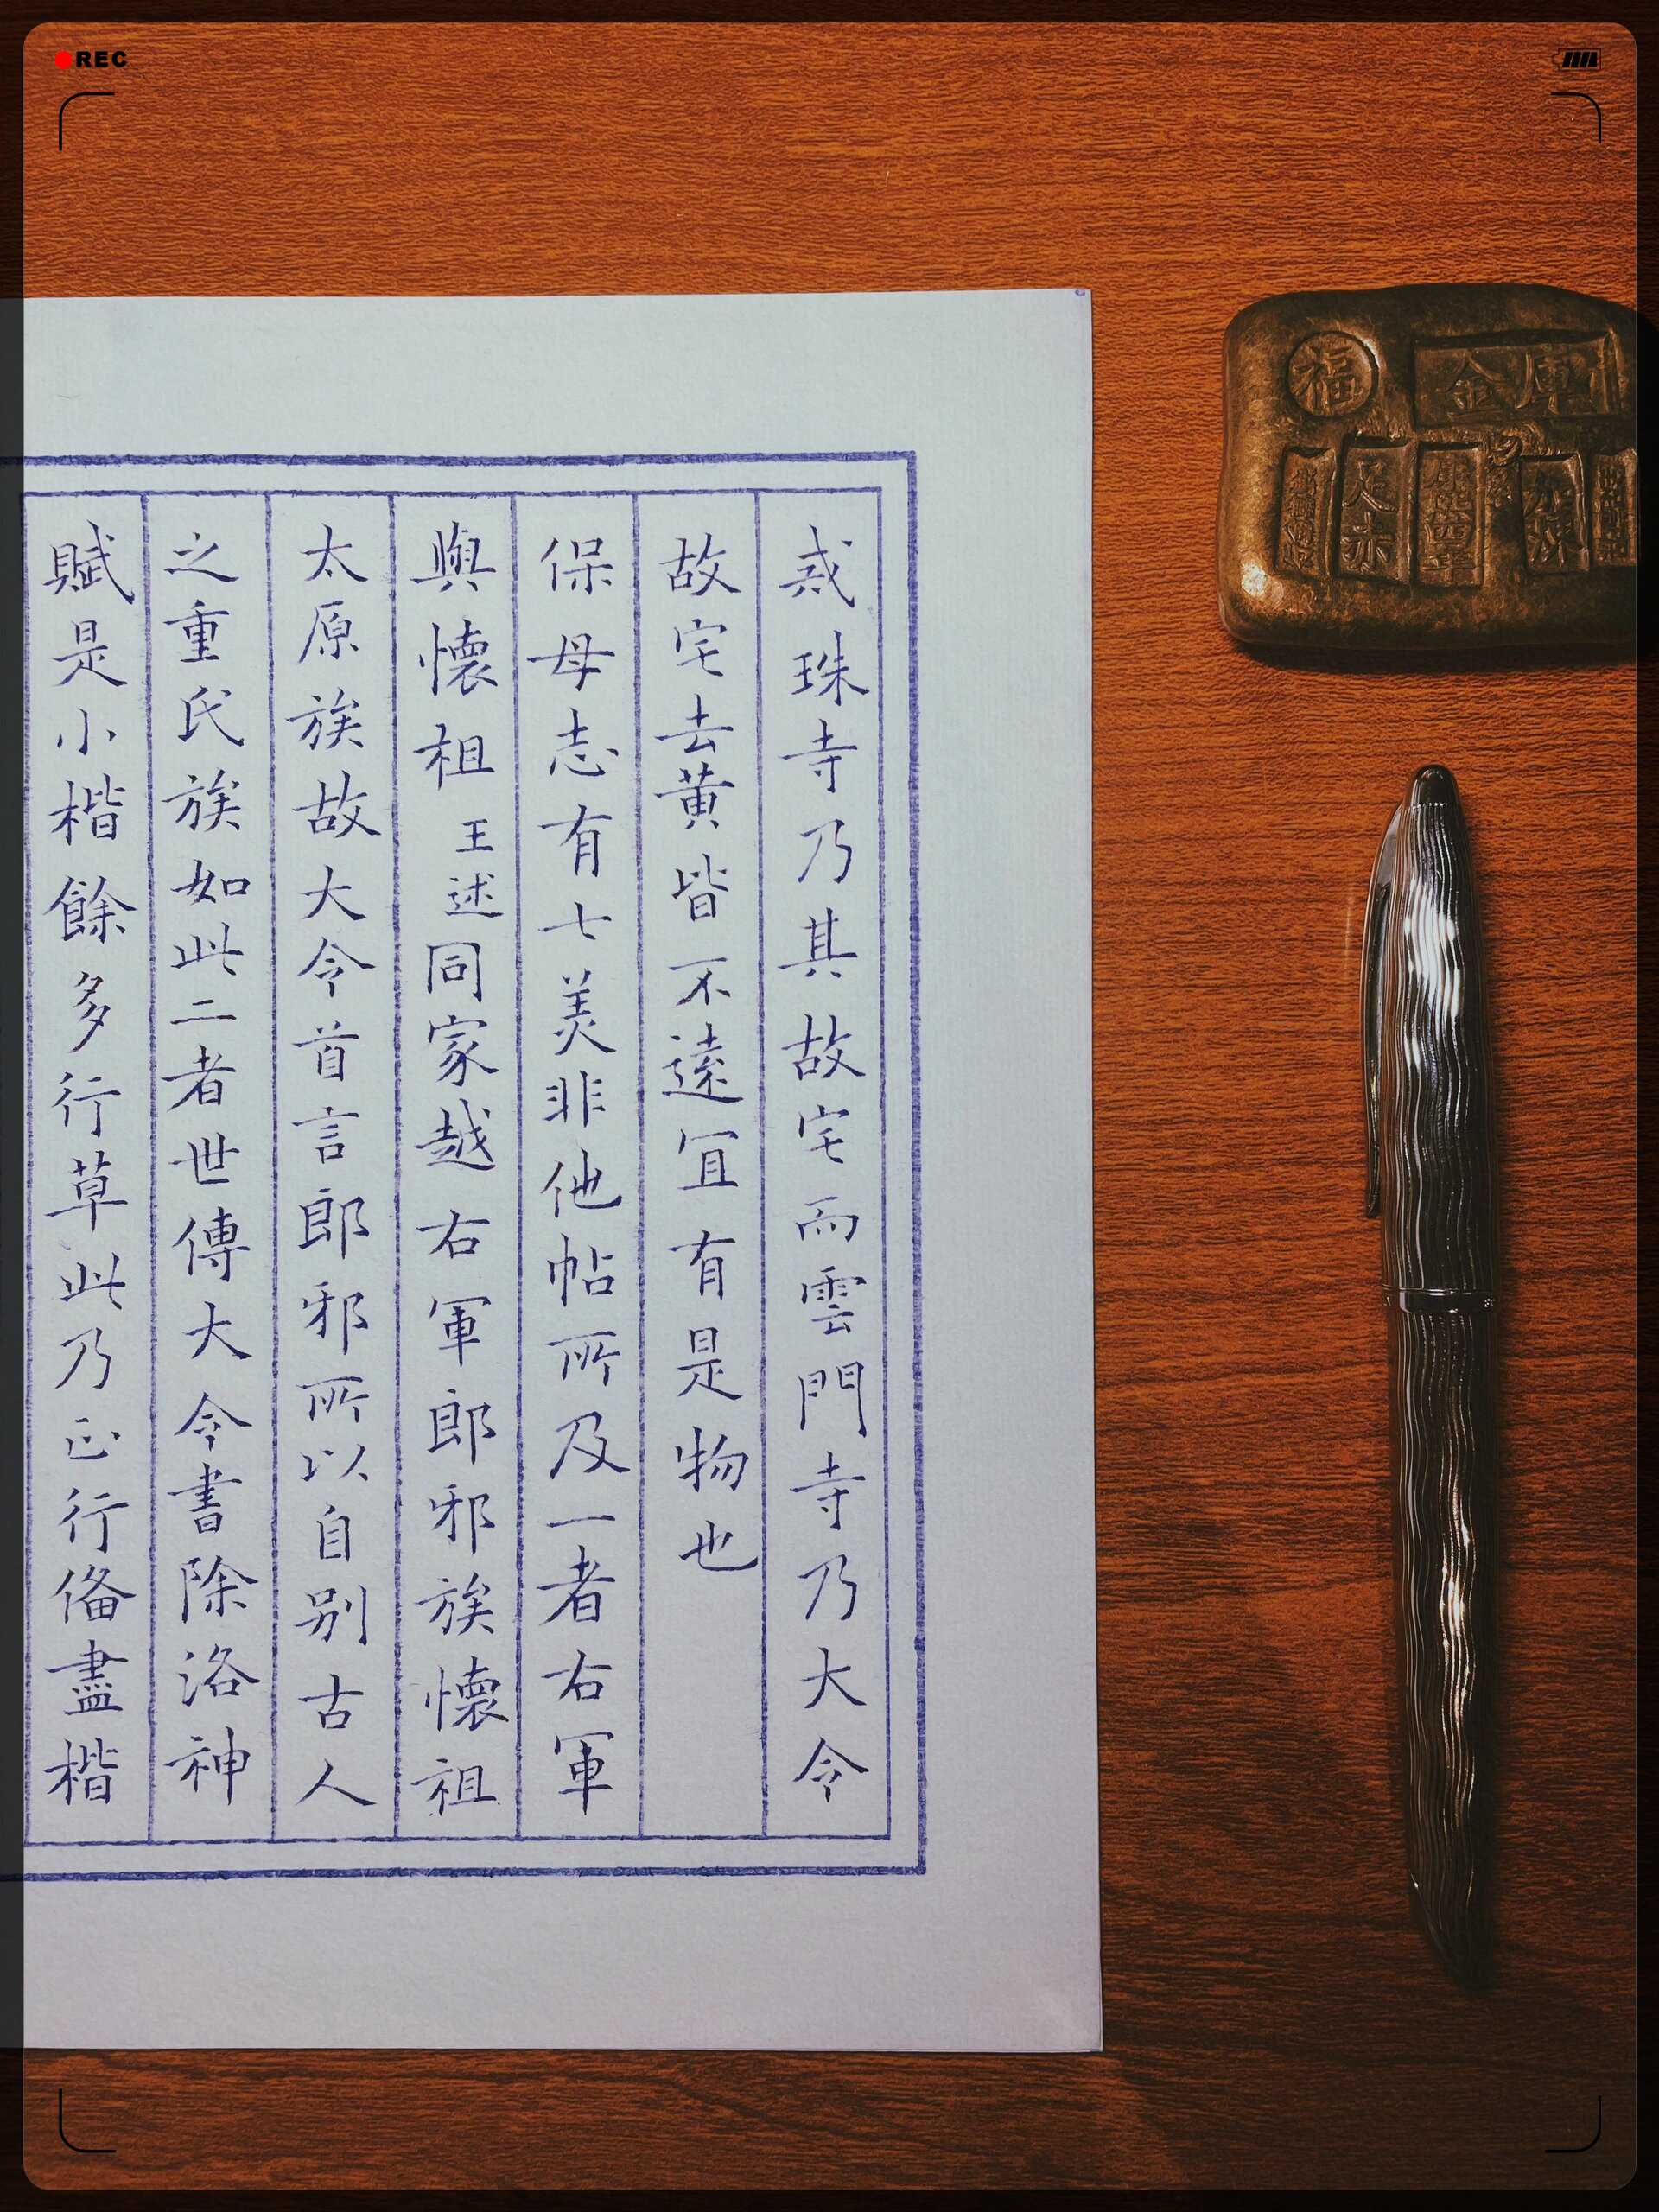 REC
惑珠寺乃其故宅而雲門寺乃大令
故宅去黄皆不遠宜有是物也
保母志有七美非他帖所及一者右軍
與懷祖王述同家越右軍郎邪族懷祖
太原族故大令首言郎邪所以自别古人
之重氏族如此二者世傳大令書除洛神
賦是小楷餘多行草此乃正行備盡楷
福
金庫
足赤